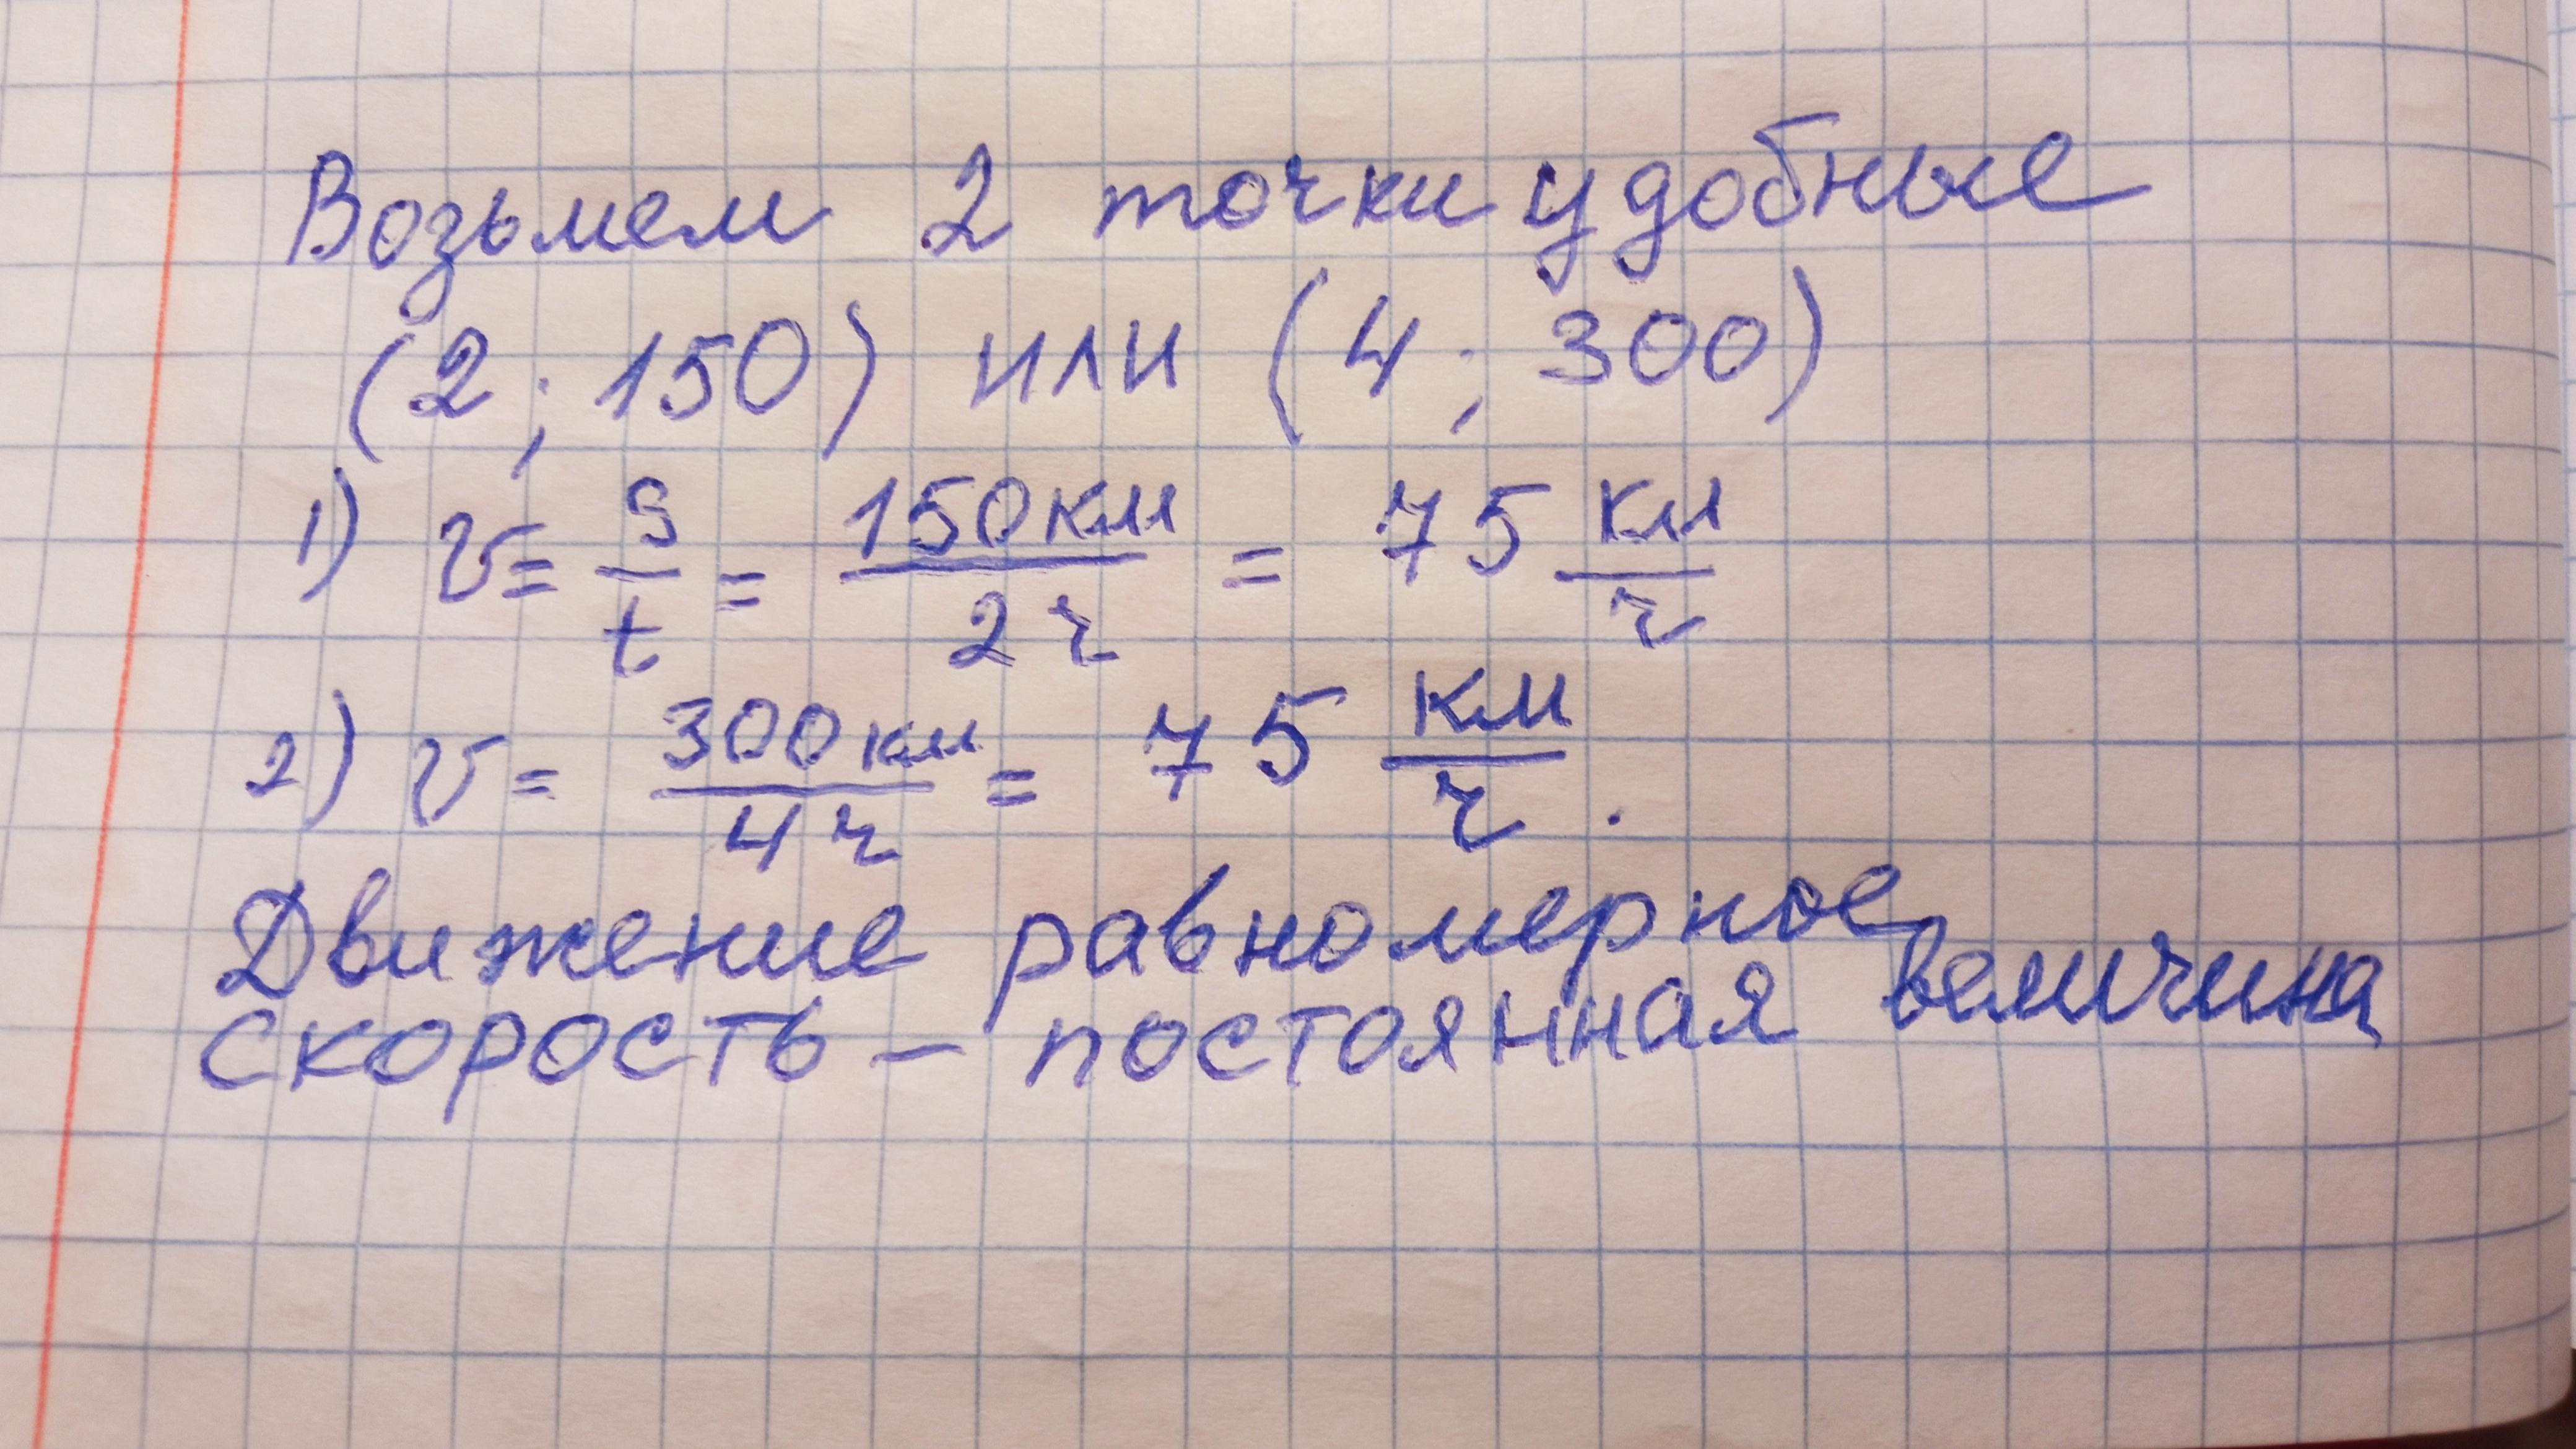 Возьмем 2 точки удобные
(2; 150) или (4; 300)
1) v = s/t = 150км/2ч = 75 км/ч
2) v = 300км/4ч = 75 км/ч.
Движение равномерное,
скорость – постоянная величина